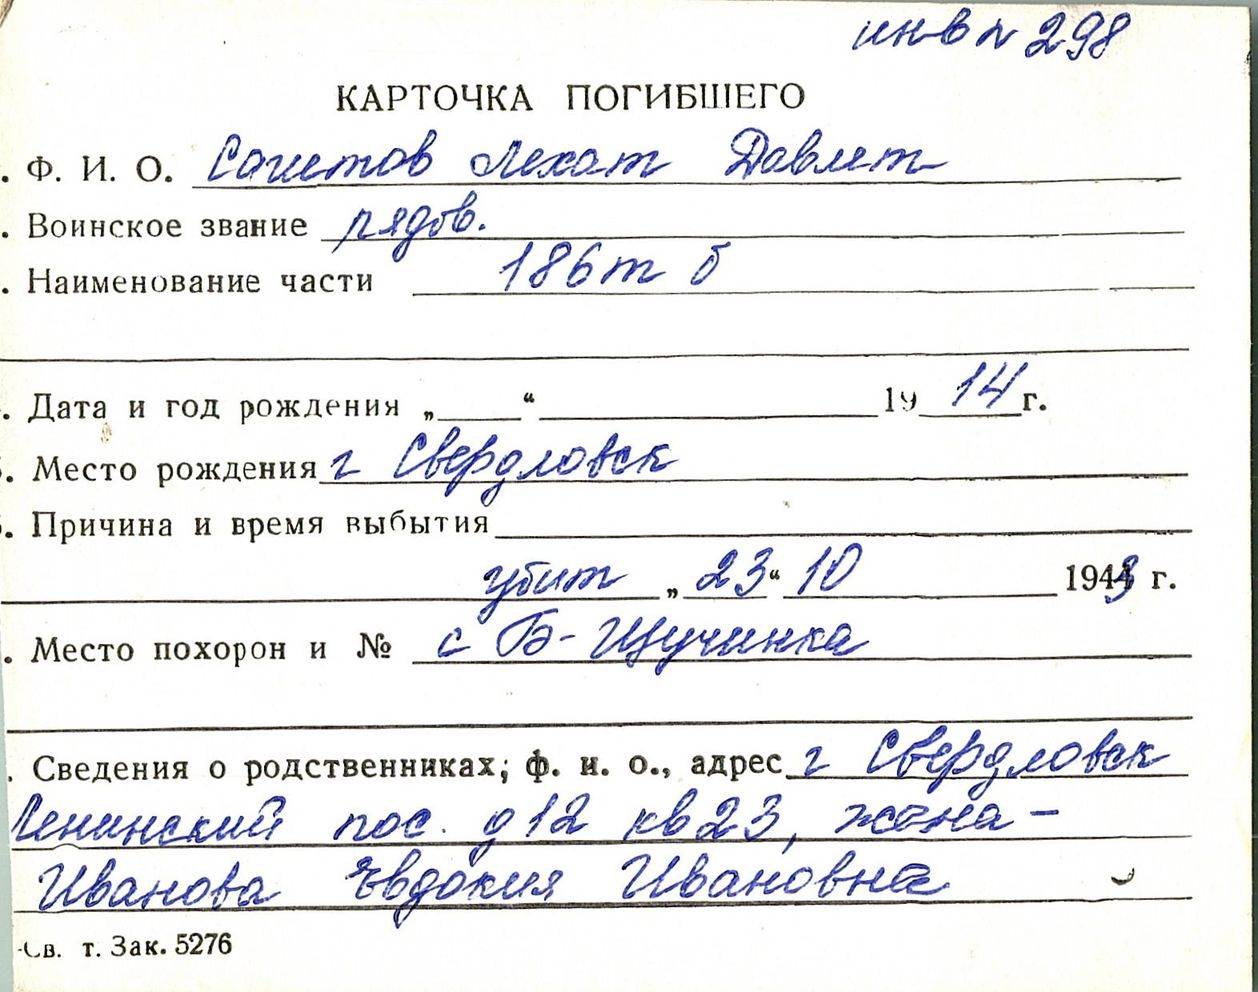 инв № 298
КАРТОЧКА ПОГИБШЕГО
. Ф. И. О. Сагитов Лехат Давлет
. Воинское звание рядов.
. Наименование части 186 т б
. Дата и год рождения „ “ 19 14 г.
. Место рождения г Свердловск
. Причина и время выбытия
убит „ 23 “ 10 1943 г.
. Место похорон и № с Б-Щучинка
. Сведения о родственниках; ф. и. о., адрес г Свердловск
Ленинский пос. д 12 кв 23, жена -
Иванова Евдокия Ивановна
Св. т. Зак. 5276